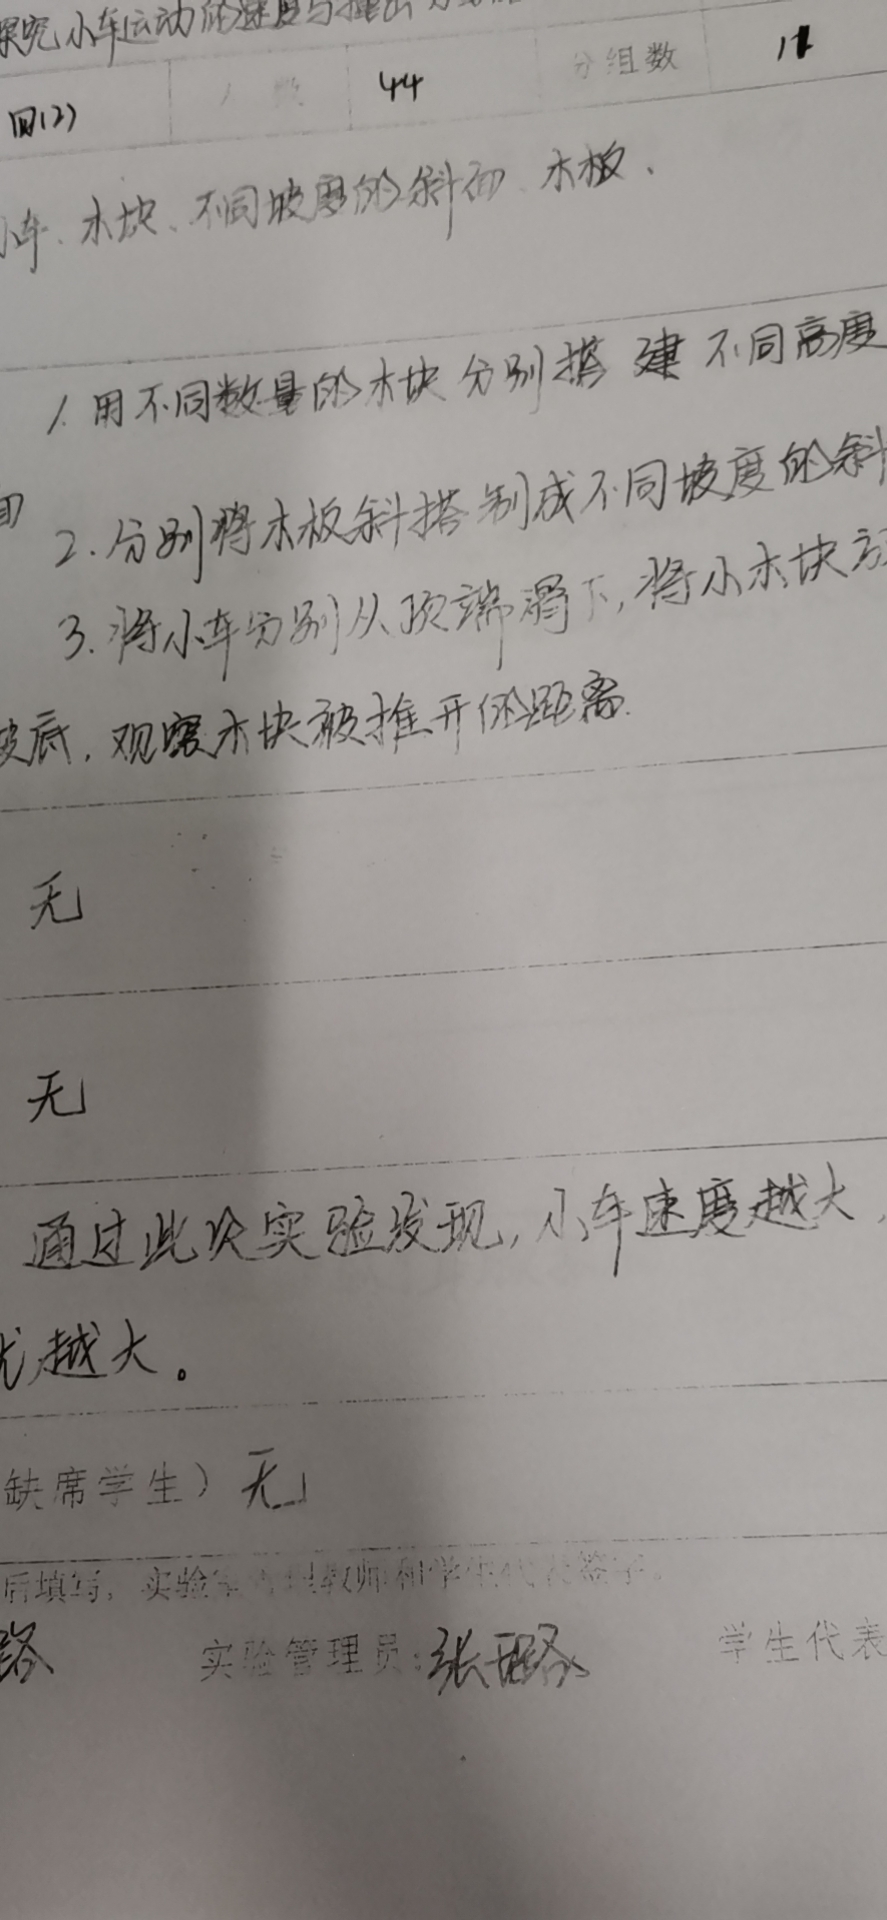 探究小车运动的速度与撞击
四(2) 人数 44 分组数 11
小车、木块、不同坡度的斜面、木板、
1.用不同数量的木块分别搭建不同高度
面
2.分别将木板斜搭制成不同坡度的斜
3.将小车分别从顶端滑下,将小木块
坡底,观察木块被推开的距离.
无
无
通过此次实验发现,小车速度越大,
越大。
缺席学生)无
后填写,实验室管理教师和学生代表签字。
路 实验管理员:张璐 学生代表